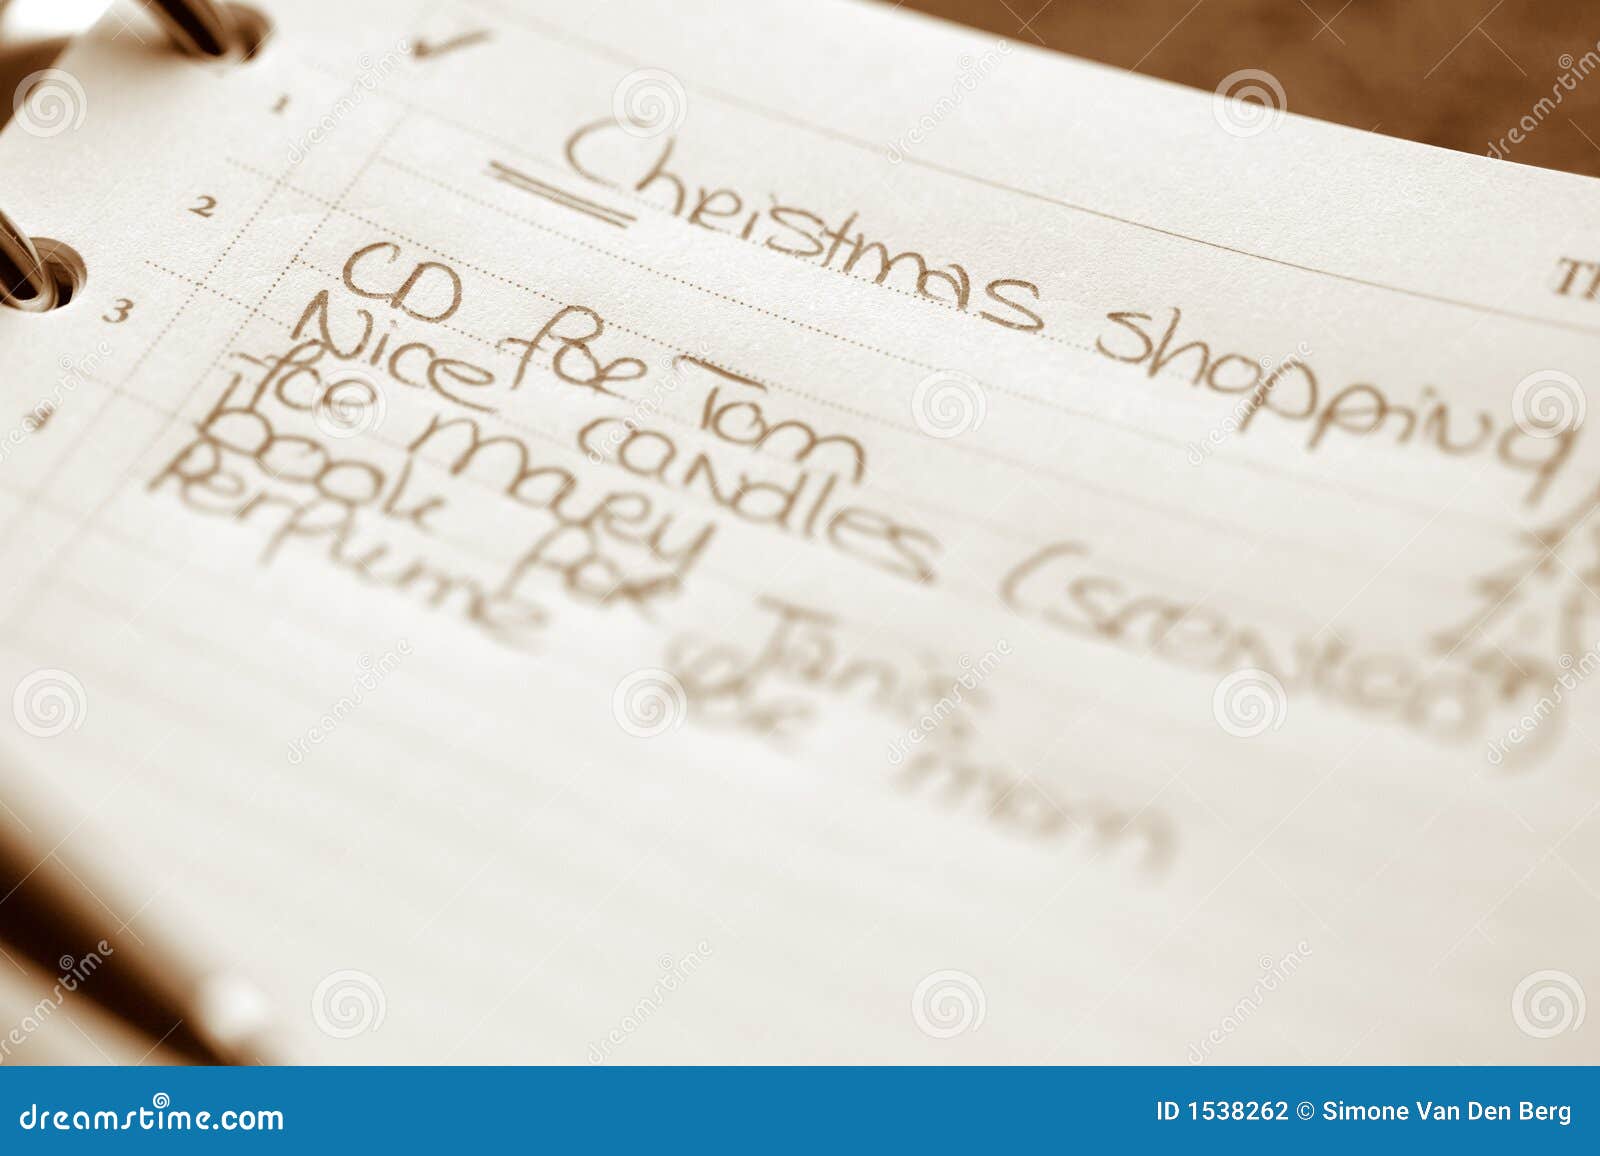 ✓
Th
1
2
3
4
Christmas shopping
CD for Tom
Nice candles (scented)
for Mary
book for Janis
Perfume for mom
dreamstime.com
ID 1538262 © Simone Van Den Berg